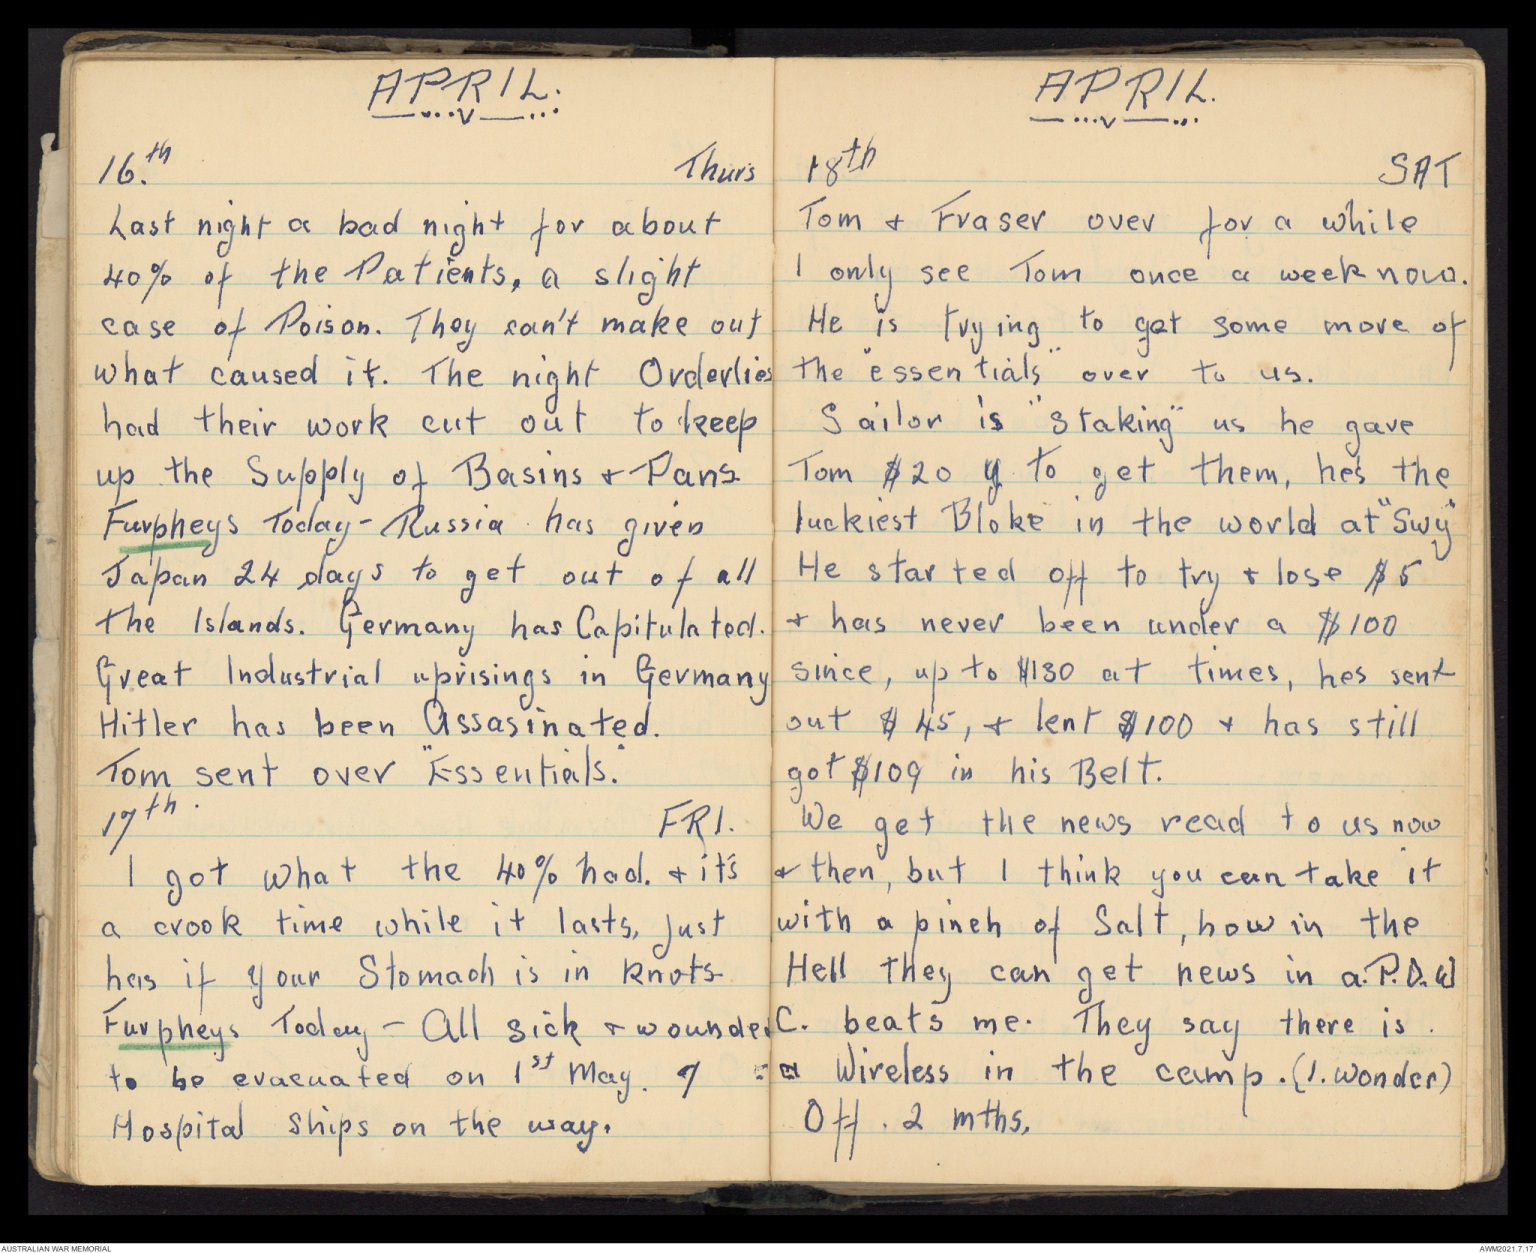 APRIL.
16.th Thurs
Last night a bad night for about
40% of the Patients, a slight
case of Poison. They can't make out
what caused it. The night Orderlies
had their work cut out to keep
up the Supply of Basins + Pans.
Furpheys Today - Russia has given
Japan 24 days to get out of all
the Islands. Germany has Capitulated.
Great Industrial uprisings in Germany
Hitler has been Assasinated.
Tom sent over "Essentials."
17th. FRI.
I got what the 40% had. + it's
a crook time while it lasts, just
has if your Stomach is in knots
Furpheys Today - All sick + wounded
to be evacuated on 1st May. 7
Hospital Ships on the way.
APRIL.
18th SAT
Tom + Fraser over for a while
I only see Tom once a week now.
He is trying to get some more of
the "essentials" over to us.
Sailor is "staking" us he gave
Tom $20 to get them, he's the
luckiest Bloke in the world at "Swy"
He started off to try + lose $5
+ has never been under a $100
since, up to $130 at times, hes sent
out $45, + lent $100 + has still
got $109 in his Belt.
We get the news read to us now
+ then, but I think you can take it
with a pinch of Salt, how in the
Hell they can get news in a P.O.W
C. beats me. They say there is
a Wireless in the camp. (I. wonder)
Off. 2 mths.
AUSTRALIAN WAR MEMORIAL AWM2021.7.17